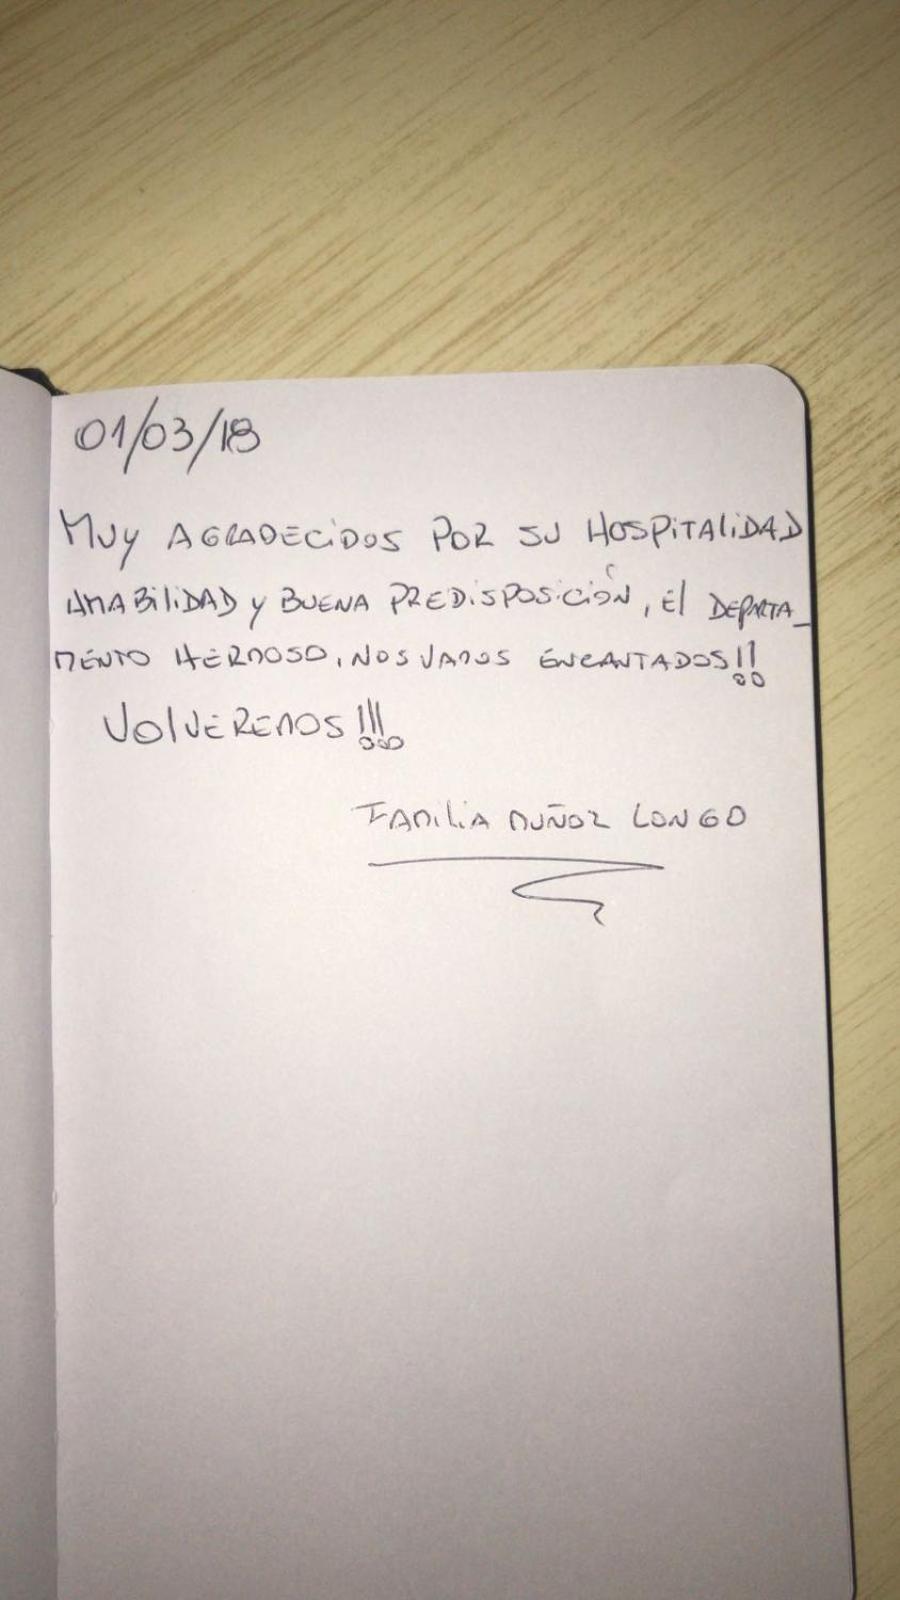 01/03/18
MUY AGRADECIDOS POR SU HOSPITALIDAD
AMABILIDAD Y BUENA PREDISPOSICIÓN, El DEPARTA_
MENTO HERMOSO, NOS VAMOS ENCANTADOS!!
VOLVEREMOS!!!
FAMILIA MUÑOZ LONGO